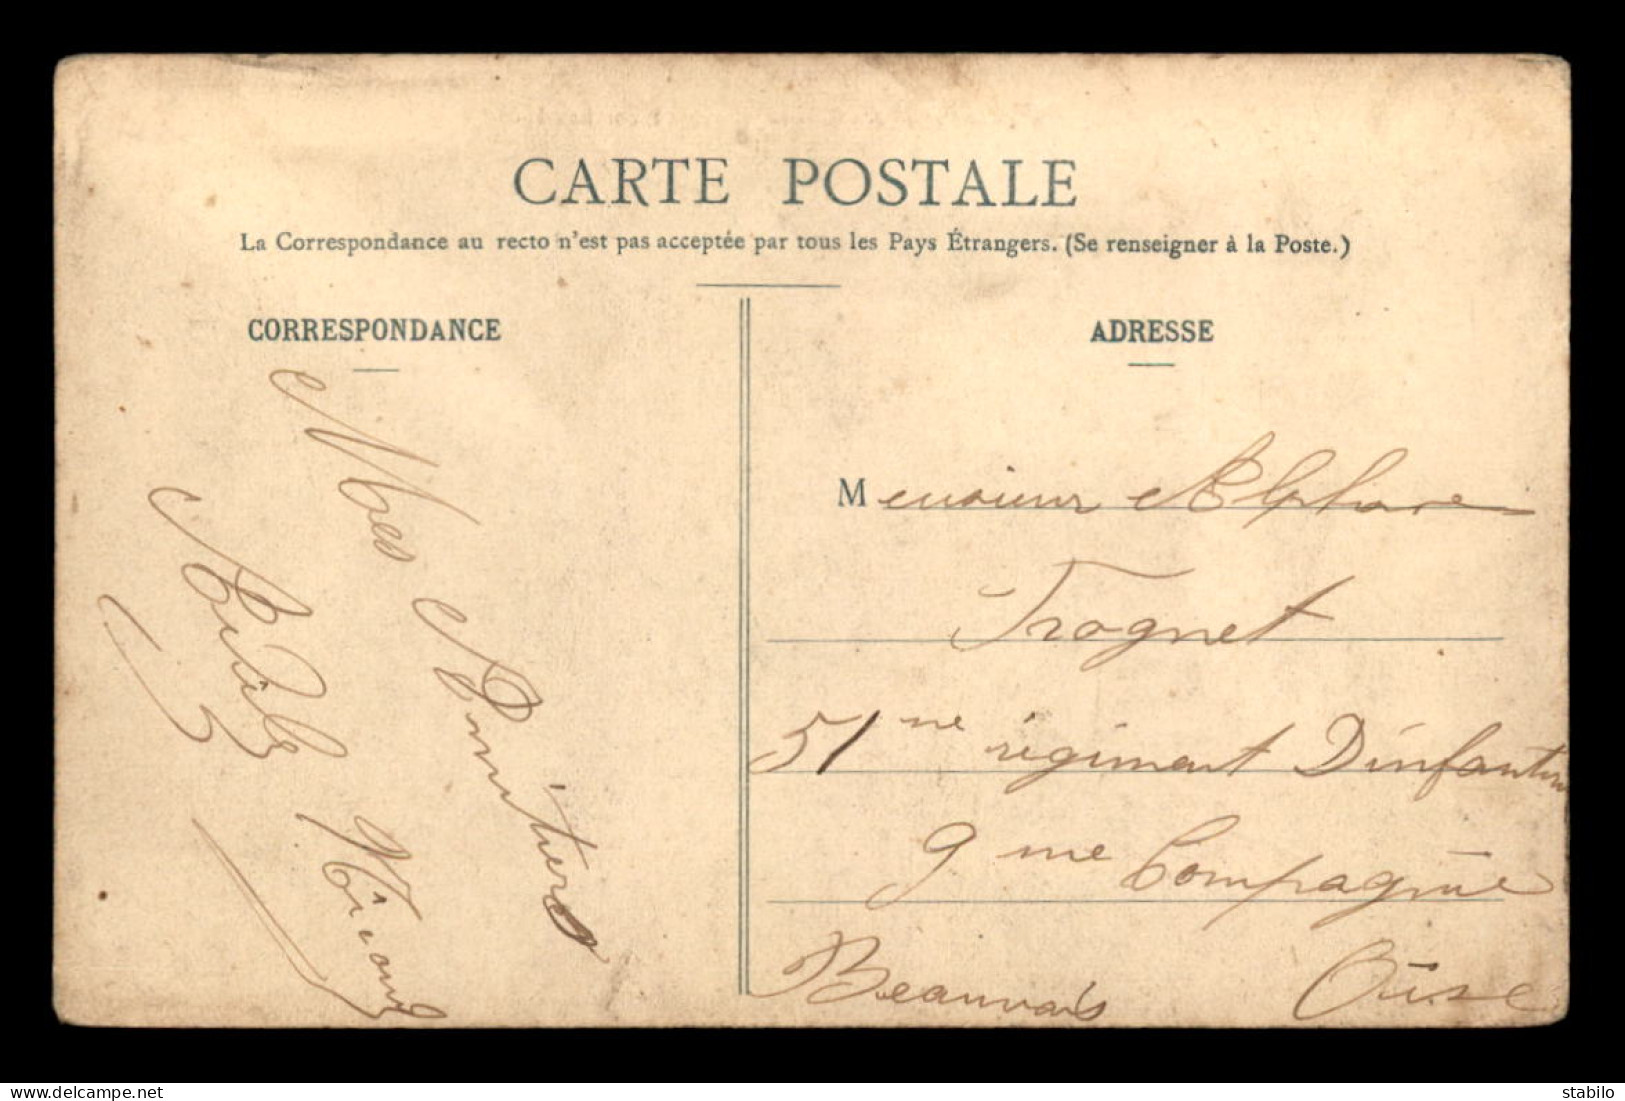 CARTE POSTALE
La Correspondance au recto n'est pas acceptée par tous les Pays Étrangers. (Se renseigner à la Poste.)
CORRESPONDANCE
Mes
ADRESSE
Monsieur Alphonse
Trognet
51 me régiment D'infanterie
9 me Compagnie
Beauvais Oise
www.delcampe.net
stabilo